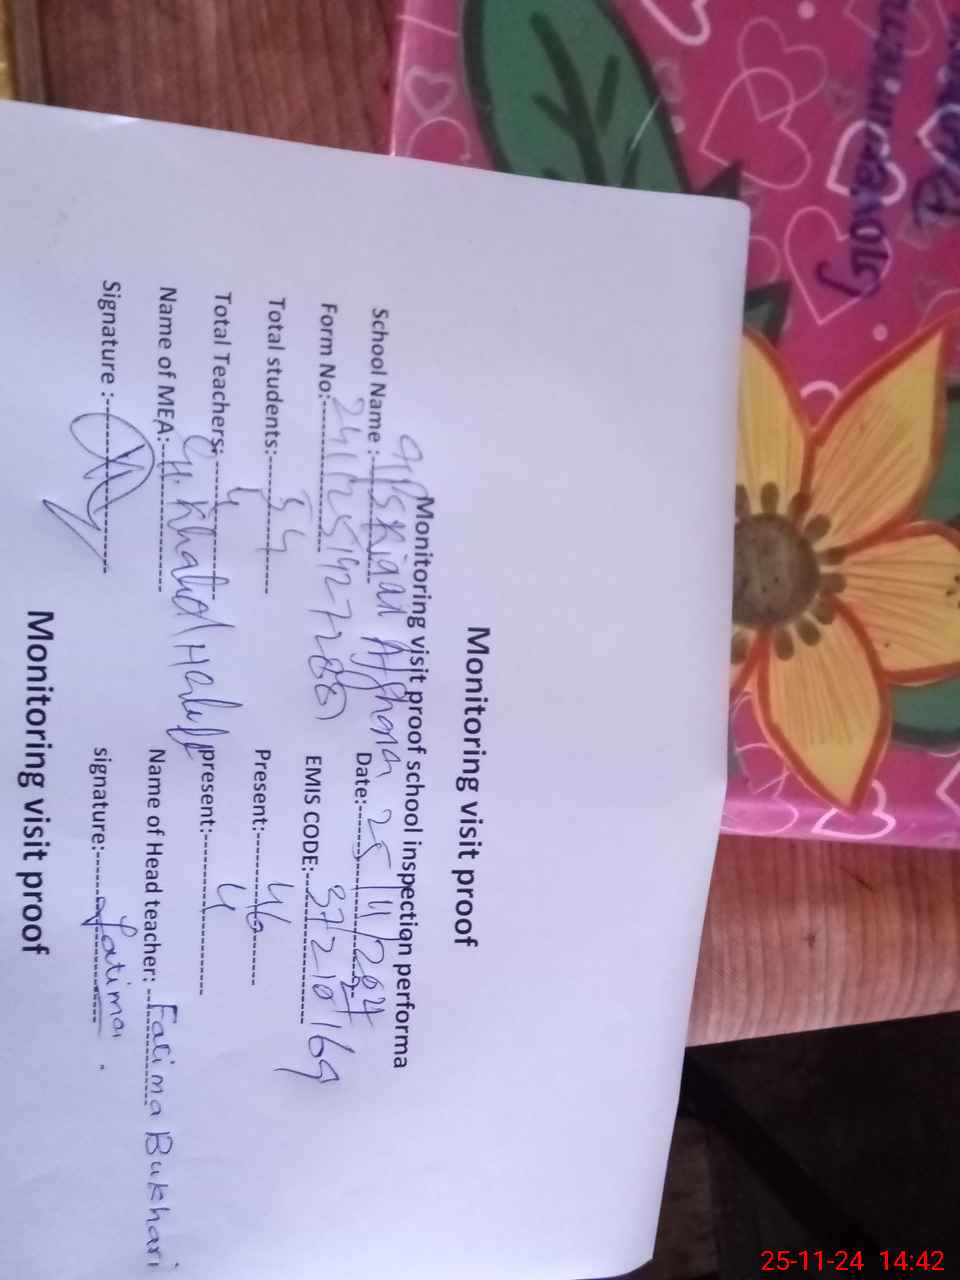 Monitoring visit proof
Monitoring visit proof school inspection performa
School Name : GPS Kigan Afghana Date: 25/11/2024
Form No: EMIS CODE: 37210169
Total students: 54 Present: 46
Total Teachers: 4 present: 4
Name of MEA: Khalid Name of Head teacher: Fatima Bukhari
Signature : signature: Fatima
Monitoring visit proof
25-11-24 14:42